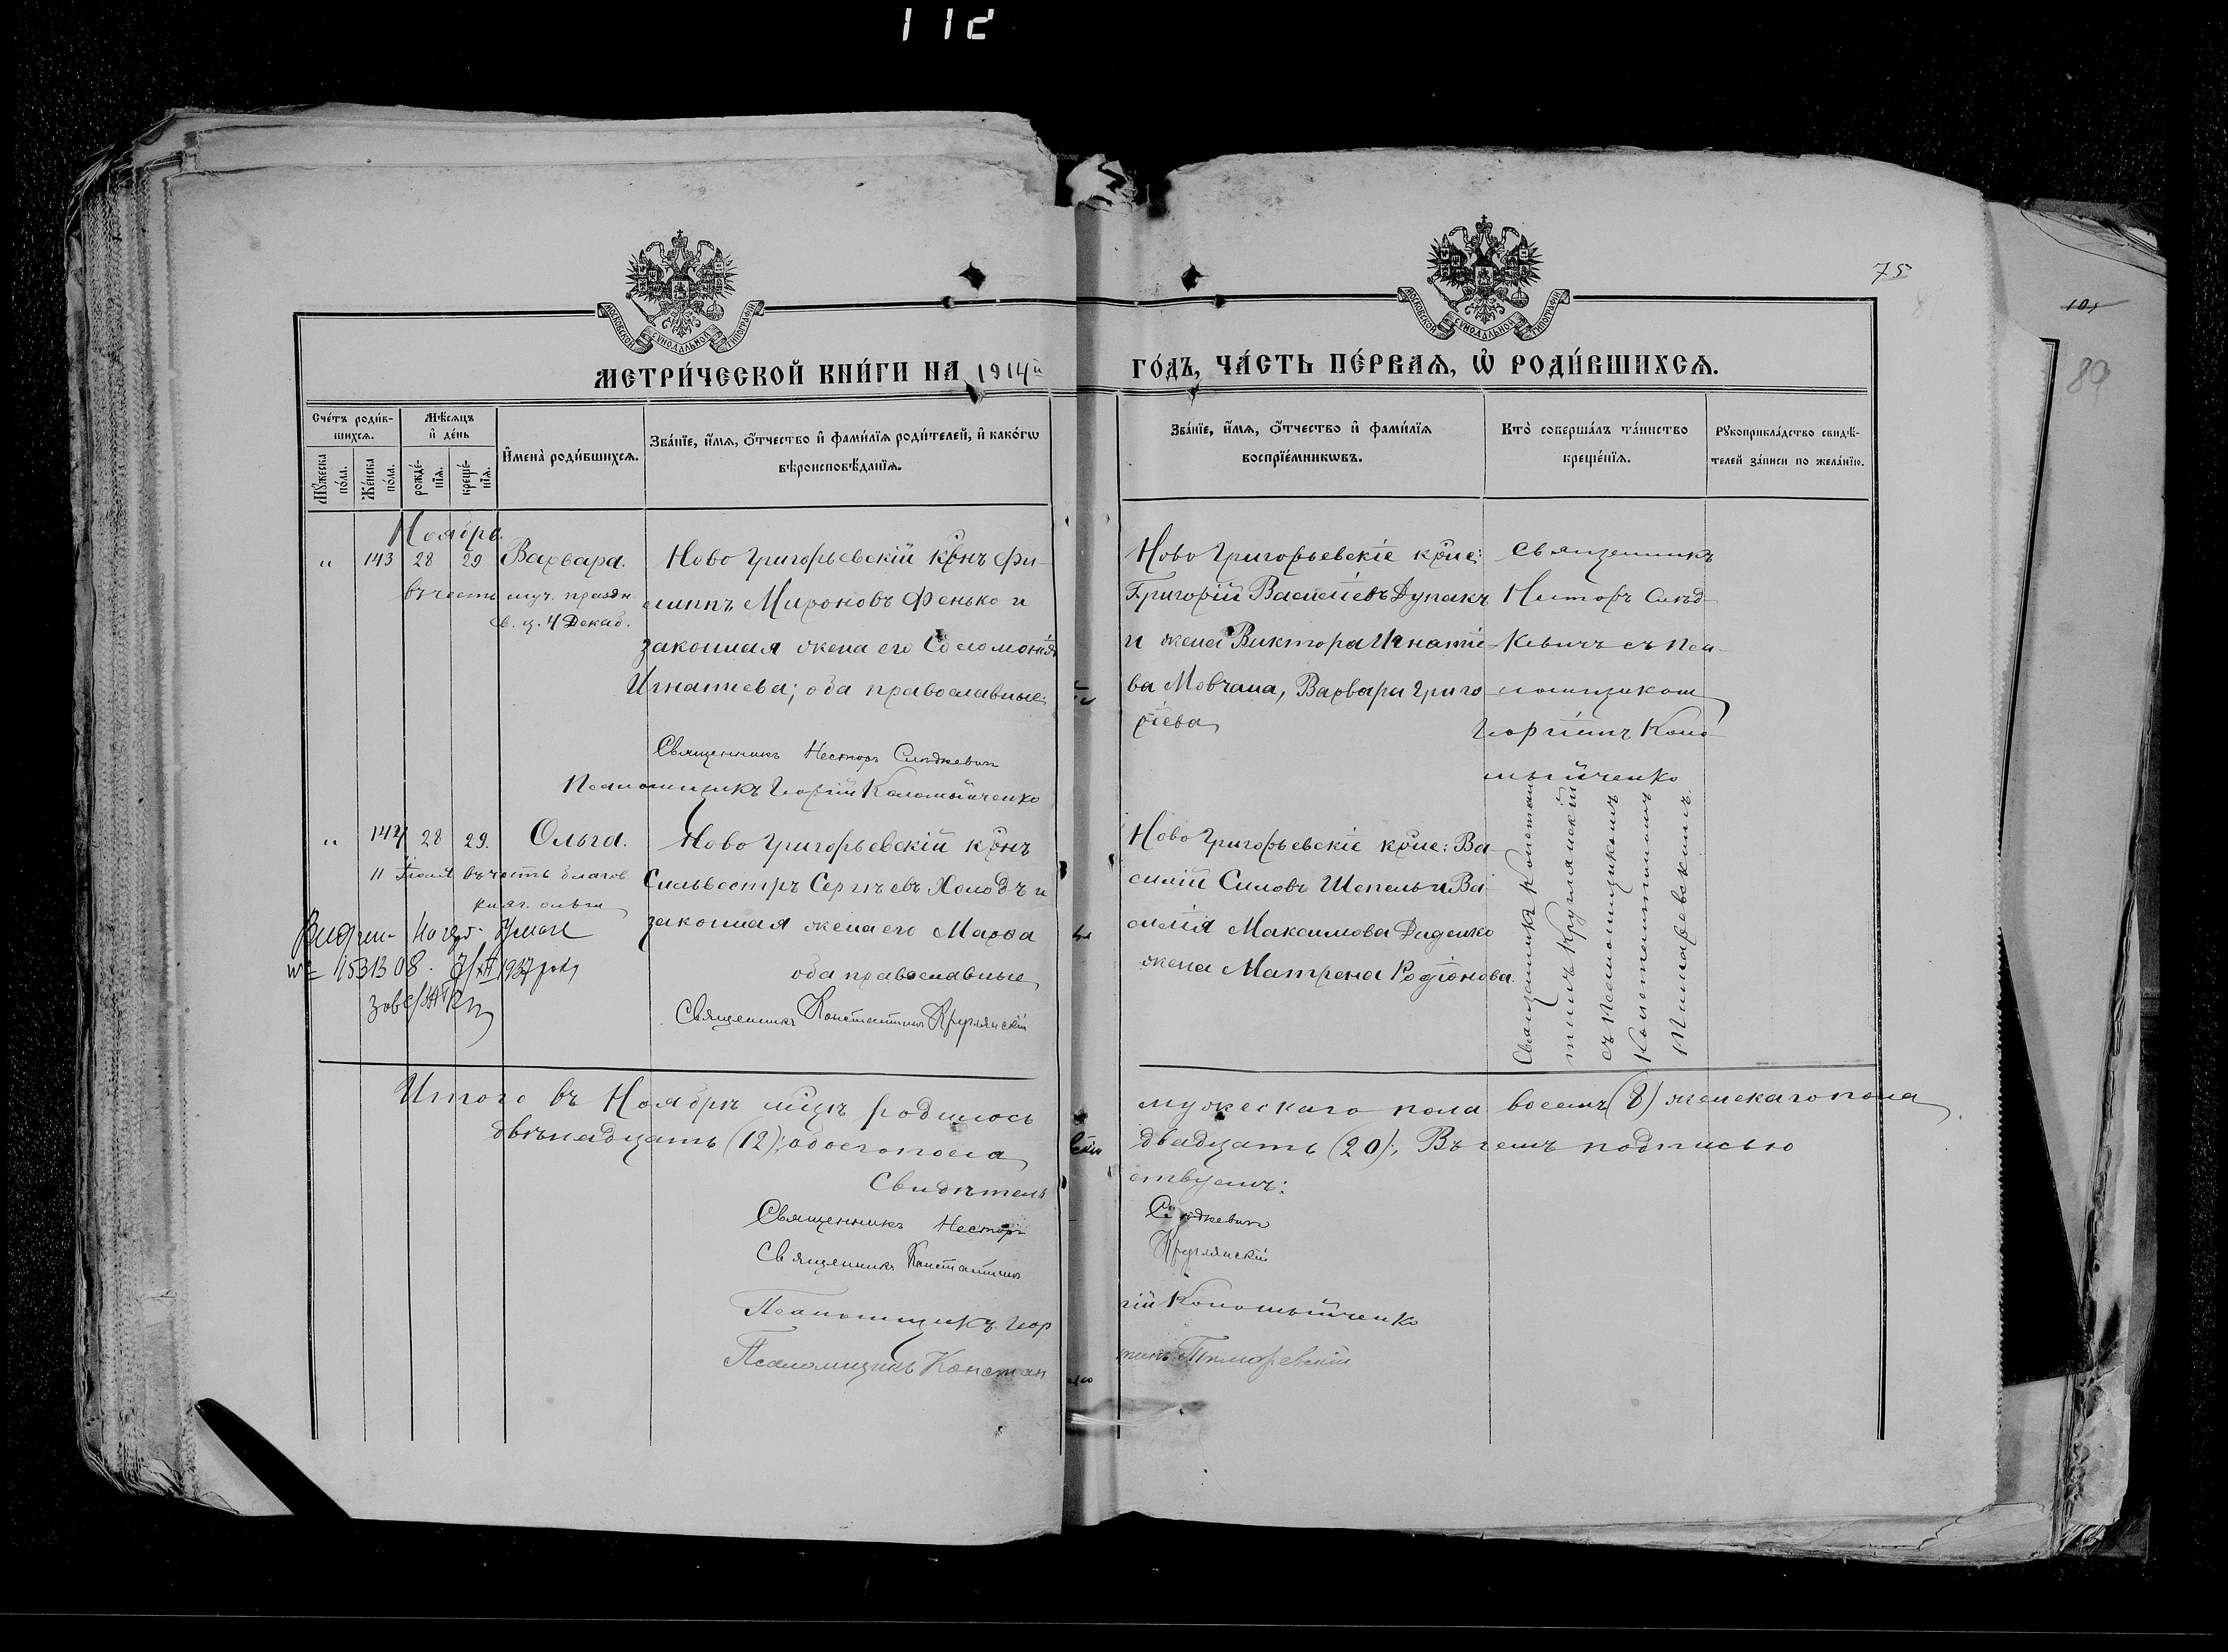 112
75
МОСКОВСКОЙ СѴНОДАЛЬНОЙ ТИПОГРАФІИ
МОСКОВСКОЙ СѴНОДАЛЬНОЙ ТИПОГРАФІИ
89
МЕТРИ́ЧЕСКОЙ КНИ́ГИ НА 1914й ГО́ДЪ, ЧА́СТЬ ПЕ́РВАѦ, Ѡ҆ РОДИ́ВШИХСѦ.
Сче́тъ роди́в-
шихсѧ.
Мꙋ́жеска по́ла.
Же́нска по́ла.
Мѣ́сѧцъ
и҆ де́нь
рожде́-
нїѧ.
креще́-
нїѧ.
И҆мена̀ роди́вшихсѧ.
Зва́нїе, и҆́мѧ, ѻ҆́тчество и҆ фами́лїѧ роди́телей, и҆ како́гѡ
вѣроисповѣ́данїѧ.
Зва́нїе, и҆́мѧ, ѻ҆́тчество и҆ фами́лїѧ
воспрїе́мникѡвъ.
Кто̀ соверша́лъ та́инство
креще́нїѧ.
Рꙋкоприкла́дство свидѣ́-
телей за́писи по жела́нїю.
Ноября
" 143 28 29 Варвара.
въ честь муч. праздн
св. ц. 4 Декаб.
Ново Григорьевскій крнъ Фи-
липпъ Мироновъ Фенько и
законная жена его Соломонія
Игнатиева; оба православные
Священникъ Несторъ Слѣдкевич
Псаломщикъ Георгій Коломыйченко
Ново Григорьевскіе крие:
Григорій Василіевъ Дупакъ
и жена Виктора Игнатіе-
ва Мовчана, Варвара Григо
ріева
Священникъ
Несторъ Слѣд-
кевичъ съ Пса-
ломщикомъ
Георгіемъ Коло-
мыйченко
" 144 28 29. Ольга.
11 Іюля въ честь благов.
княг. Ольги
Ново Григорьевскій крнъ
Сильвестръ Сергѣевъ Холодъ и
законная жена его Марфа
оба православные
Священникъ Константинъ Круглянскій
Ново Григорьевскіе крие: Ва
силій Силовъ Шепель и Ва-
силія Максимова Диденко
жена Матрена Родіонова.
Священникъ Констан
тинъ Круглянскій
съ Псаломщикомъ
Константиномъ
Тимофевскимъ.
№ 1531308. 7/XII 1937 року
Итого въ Ноябрѣ мцѣ родилось мужескаго пола восемь (8) женскаго пола
двѣнадцать (12); обоего пола двадцать (20); Въ чемъ подписью
Свидѣтельствуемъ:
Священникъ Несторъ Слѣдкевич
Священникъ Константинъ Круглянскій
Псаломщикъ Георгій Коломыйченко
Псаломщикъ Константинъ Тимофевскій